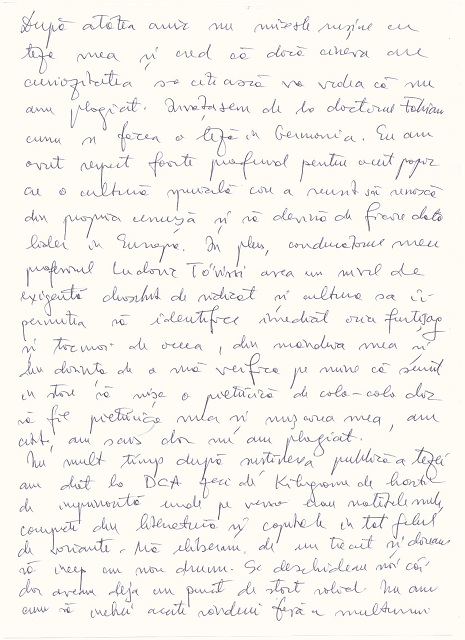 După atâtea anii nu mi-este rușine cu
teza mea și cred că dacă cineva are
curiozitatea s-o citească va vedea că nu
am plagiat. Învățasem de la doctorul Fabian
cum se făcea o teză în Germania. Eu am
avut respect foarte profund pentru acest popor
cu o cultură specială care a reușit să renască
din propria cenușă și să devină de fiecare dată
lider în Europa. În plus, conducătorul meu
profesorul Ludovic Tövissi avea un nivel de
exigență deosebit de ridicat și cultura sa îi
permitea să identifice imediat orice furtișag
și tocmai de aceea, din mândria mea și
din dorința de a mă verifica pe mine că sunt
în stare să mișc o pietricică de colo-colo dar
să fie pietricica mea și mișcarea mea, am
citit, am scris dar nu am plagiat.
Nu mult timp după susținerea publică a tezei
am dat la DCA zeci de kilograme de hartie
de imprimantă unde pe verso erau notițele mele,
compuse din literatură și capitole în tot felul
de variante. Mă eliberam de un trecut și doream
să încep un nou drum. Se deschideau noi căi
dar aveam deja un punct de start solid. Nu am
cum să închei aceste rânduri fără a mulțumi